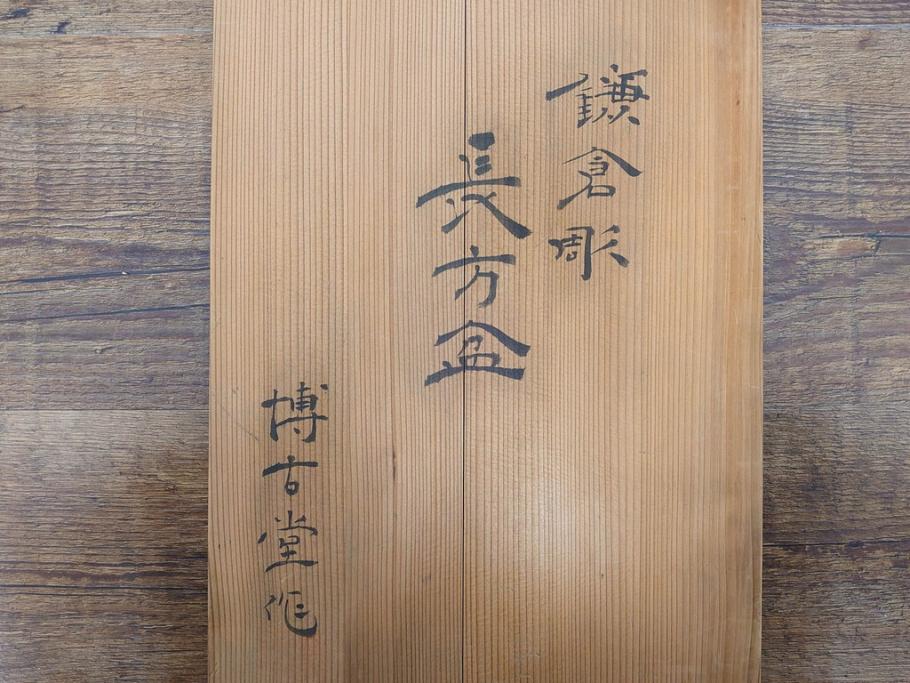 鎌倉彫
長方盆
博古堂作